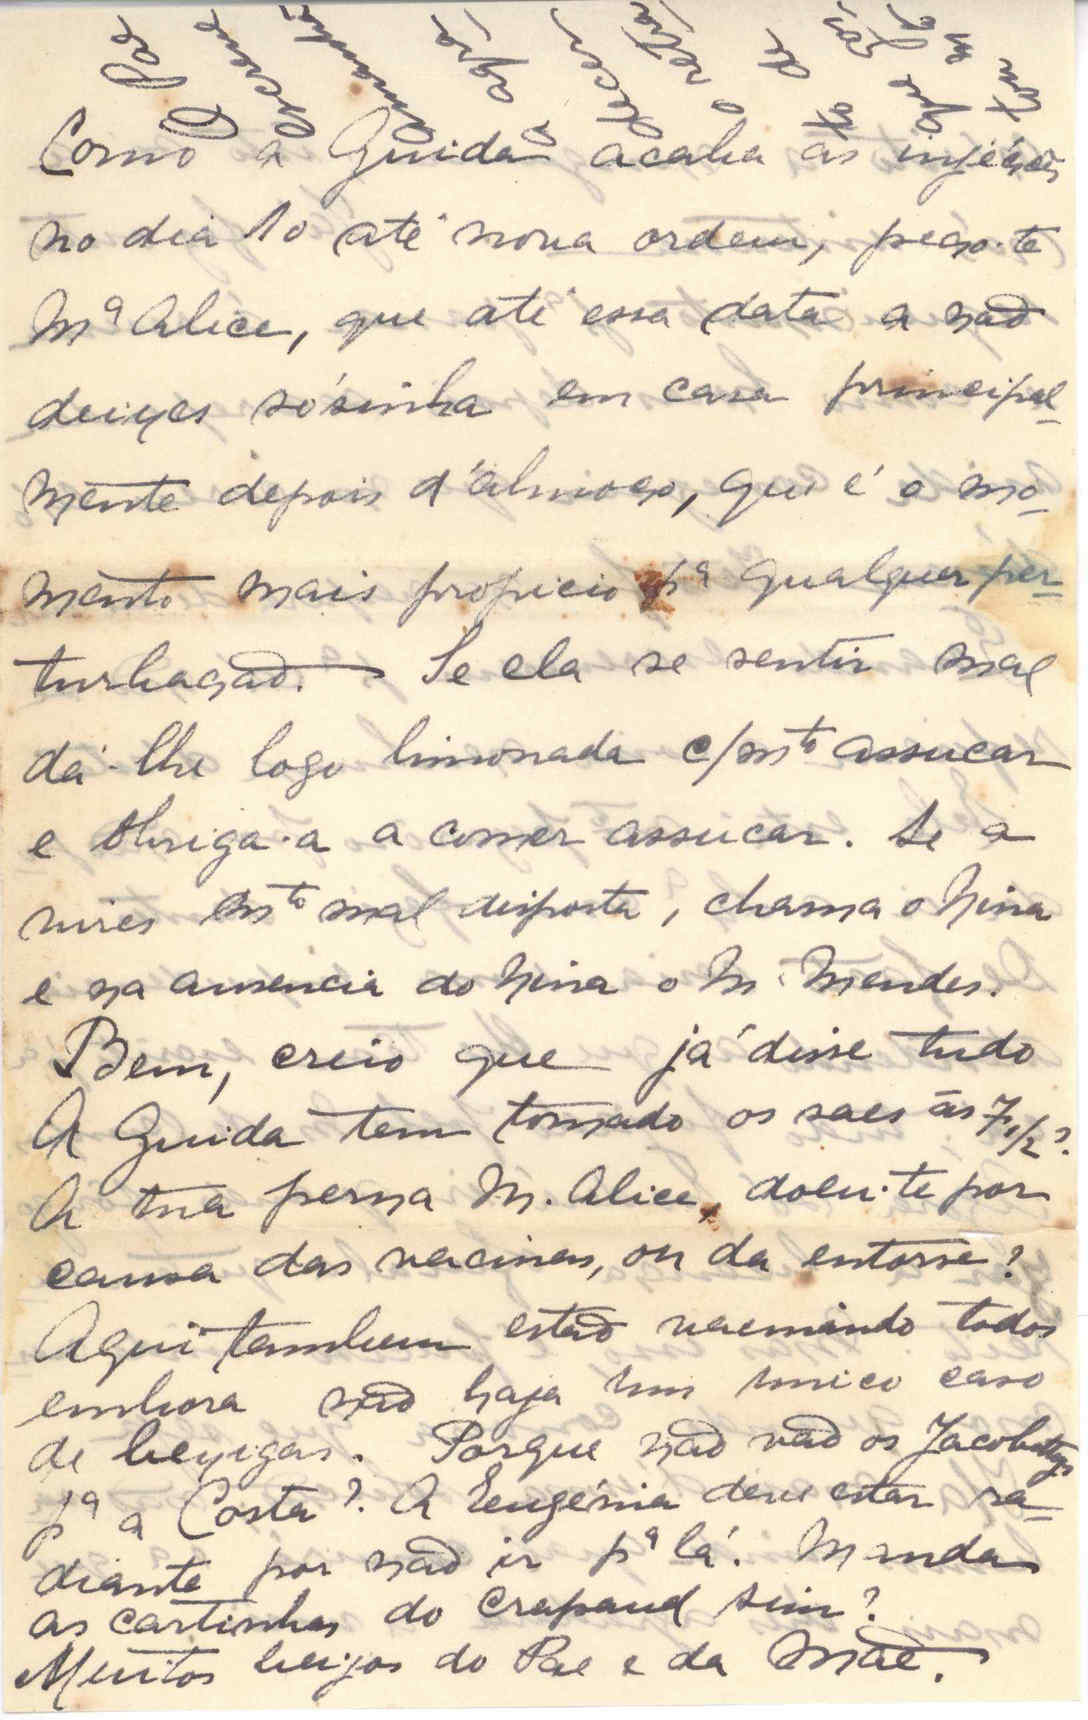 Como a Guida acaba as injéções
no dia 10 até nova ordem, peço-te
Mª Alice, que até essa data a não
deixes sósinha em casa principal-
mente depois d'almoço, que é o mo-
mento mais propicio pª qualquer per-
turbação. Se ela se sentir mal
dá-lhe logo limonada c/mto assucar
e obriga-a a comer assucar. Se a
vires mto mal disposta, chama o Nina
e na ausencia do Nina o M. Mendes.
Bem, creio que já disse tudo
A Guida tem tomado os saes às 7,1/2?
A tua perna M. Alice, doeu-te por
causa das vacinas, ou da entorse?
Aqui tambem estão vacinando todos
embora não haja um unico caso
de bexigas. Porque não vão os Jacobettys
pª a Costa? A Eugénia deve estar ra-
diante por não ir pª lá. Manda
as cartinhas do crapaud sim?
Muitos beijos do Pae e da Mãe.
O Pae
escreve
amanhã,
a agra
decer
o retra
to de
que gos
tou mᵗᵒ